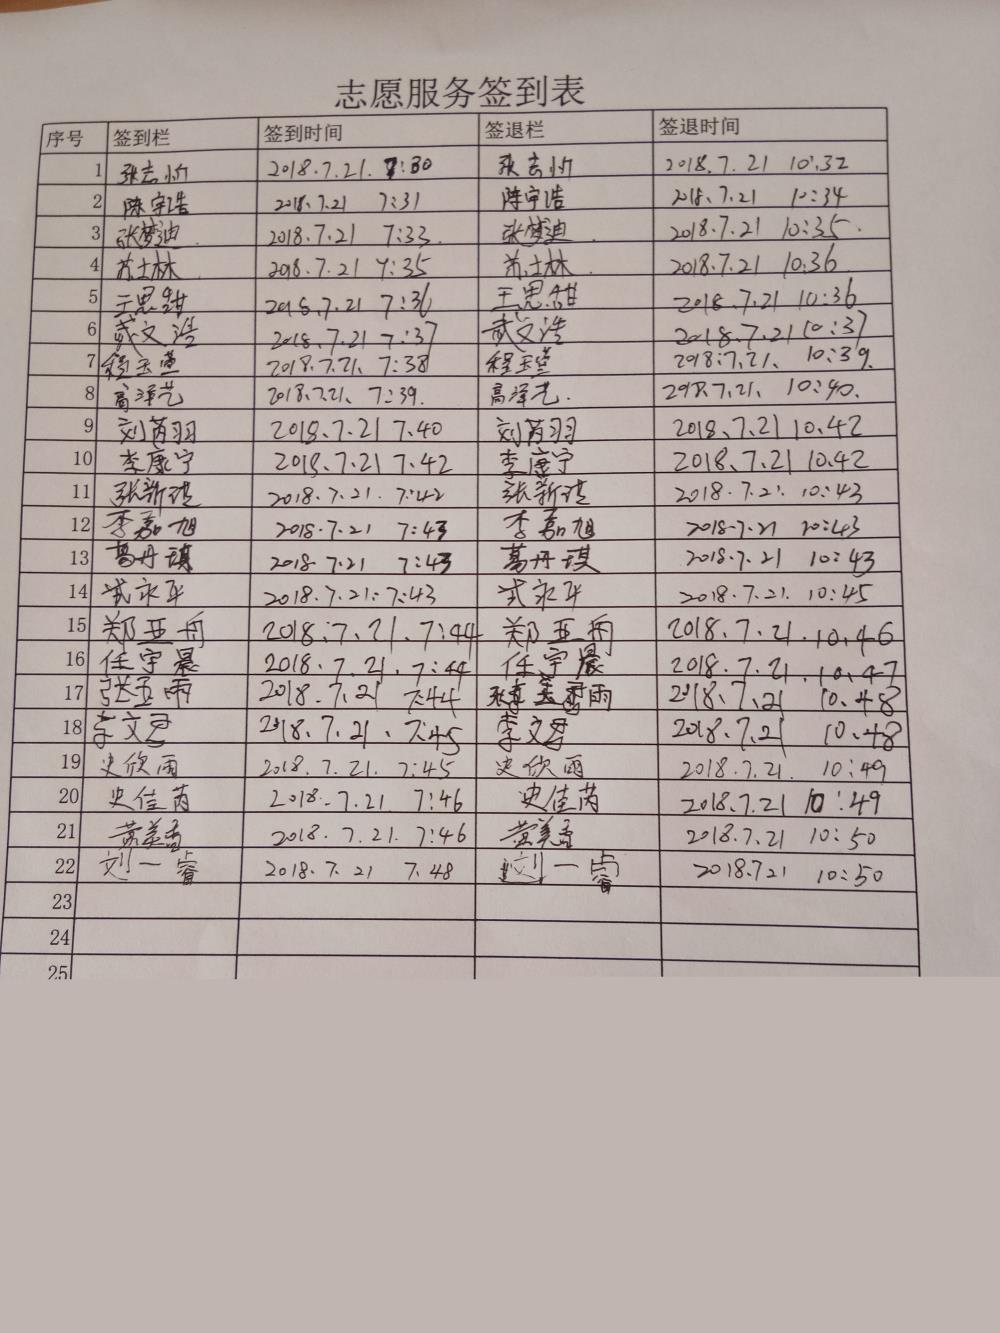 志愿服务签到表
序号 签到栏 签到时间 签退栏 签退时间
1 张志怡 2018.7.21. 7:30 张志怡 2018.7.21 10:32
2 陈宇浩 2018.7.21 7:31 陈宇浩 2018.7.21 10:34
3 张梦迪. 2018.7.21 7:33. 张梦迪. 2018.7.21 10:35.
4 苏士林. 2018.7.21 7:35 苏士林. 2018.7.21 10:36
5 王思甜 2018.7.21 7:36 王思甜 2018.7.21 10:36
6 武文浩 2018.7.21 7:37 武文浩 2018.7.21 10:37
7 程玉莹 2018.7.21、7:38 程玉莹 2018.7.21、10:39.
8 高泽艺 2018.7.21、7:39. 高泽艺. 2018.7.21、10:40.
9 刘芮羽 2018.7.21 7.40 刘芮羽 2018.7.21 10.42
10 李康宁 2018.7.21 7.42 李康宁 2018.7.21 10.42
11 张新琪 2018.7.21. 7:42 张新琪 2018.7.21. 10:43
12 李嘉旭 2018.7.21 7:43 李嘉旭 2018.7.21 10:43
13 葛丹琪 2018.7.21 7:43 葛丹琪 2018.7.21 10:43
14 武永平 2018.7.21: 7:43 武永平 2018.7.21. 10:45
15 郑亚冉 2018.7.21. 7:44 郑亚冉 2018.7.21. 10.46
16 任宇晨 2018.7.21. 7:44 任宇晨 2018.7.21. 10.47
17 张玉雨 2018.7.21 7:44 2018.7.21 10.48
18 李文君 2018.7.21. 7:45 李文君 2018.7.21 10.48
19 史欣雨 2018.7.21. 7:45 史欣雨 2018.7.21. 10:49
20 史佳芮 2018.7.21. 7:46 史佳芮 2018.7.21 10:49
21 黄美孟 2018.7.21. 7:46 黄美孟 2018.7.21 10:50
22 刘一睿 2018.7.21 7.48 刘一睿 2018.7.21 10:50
23
24
25